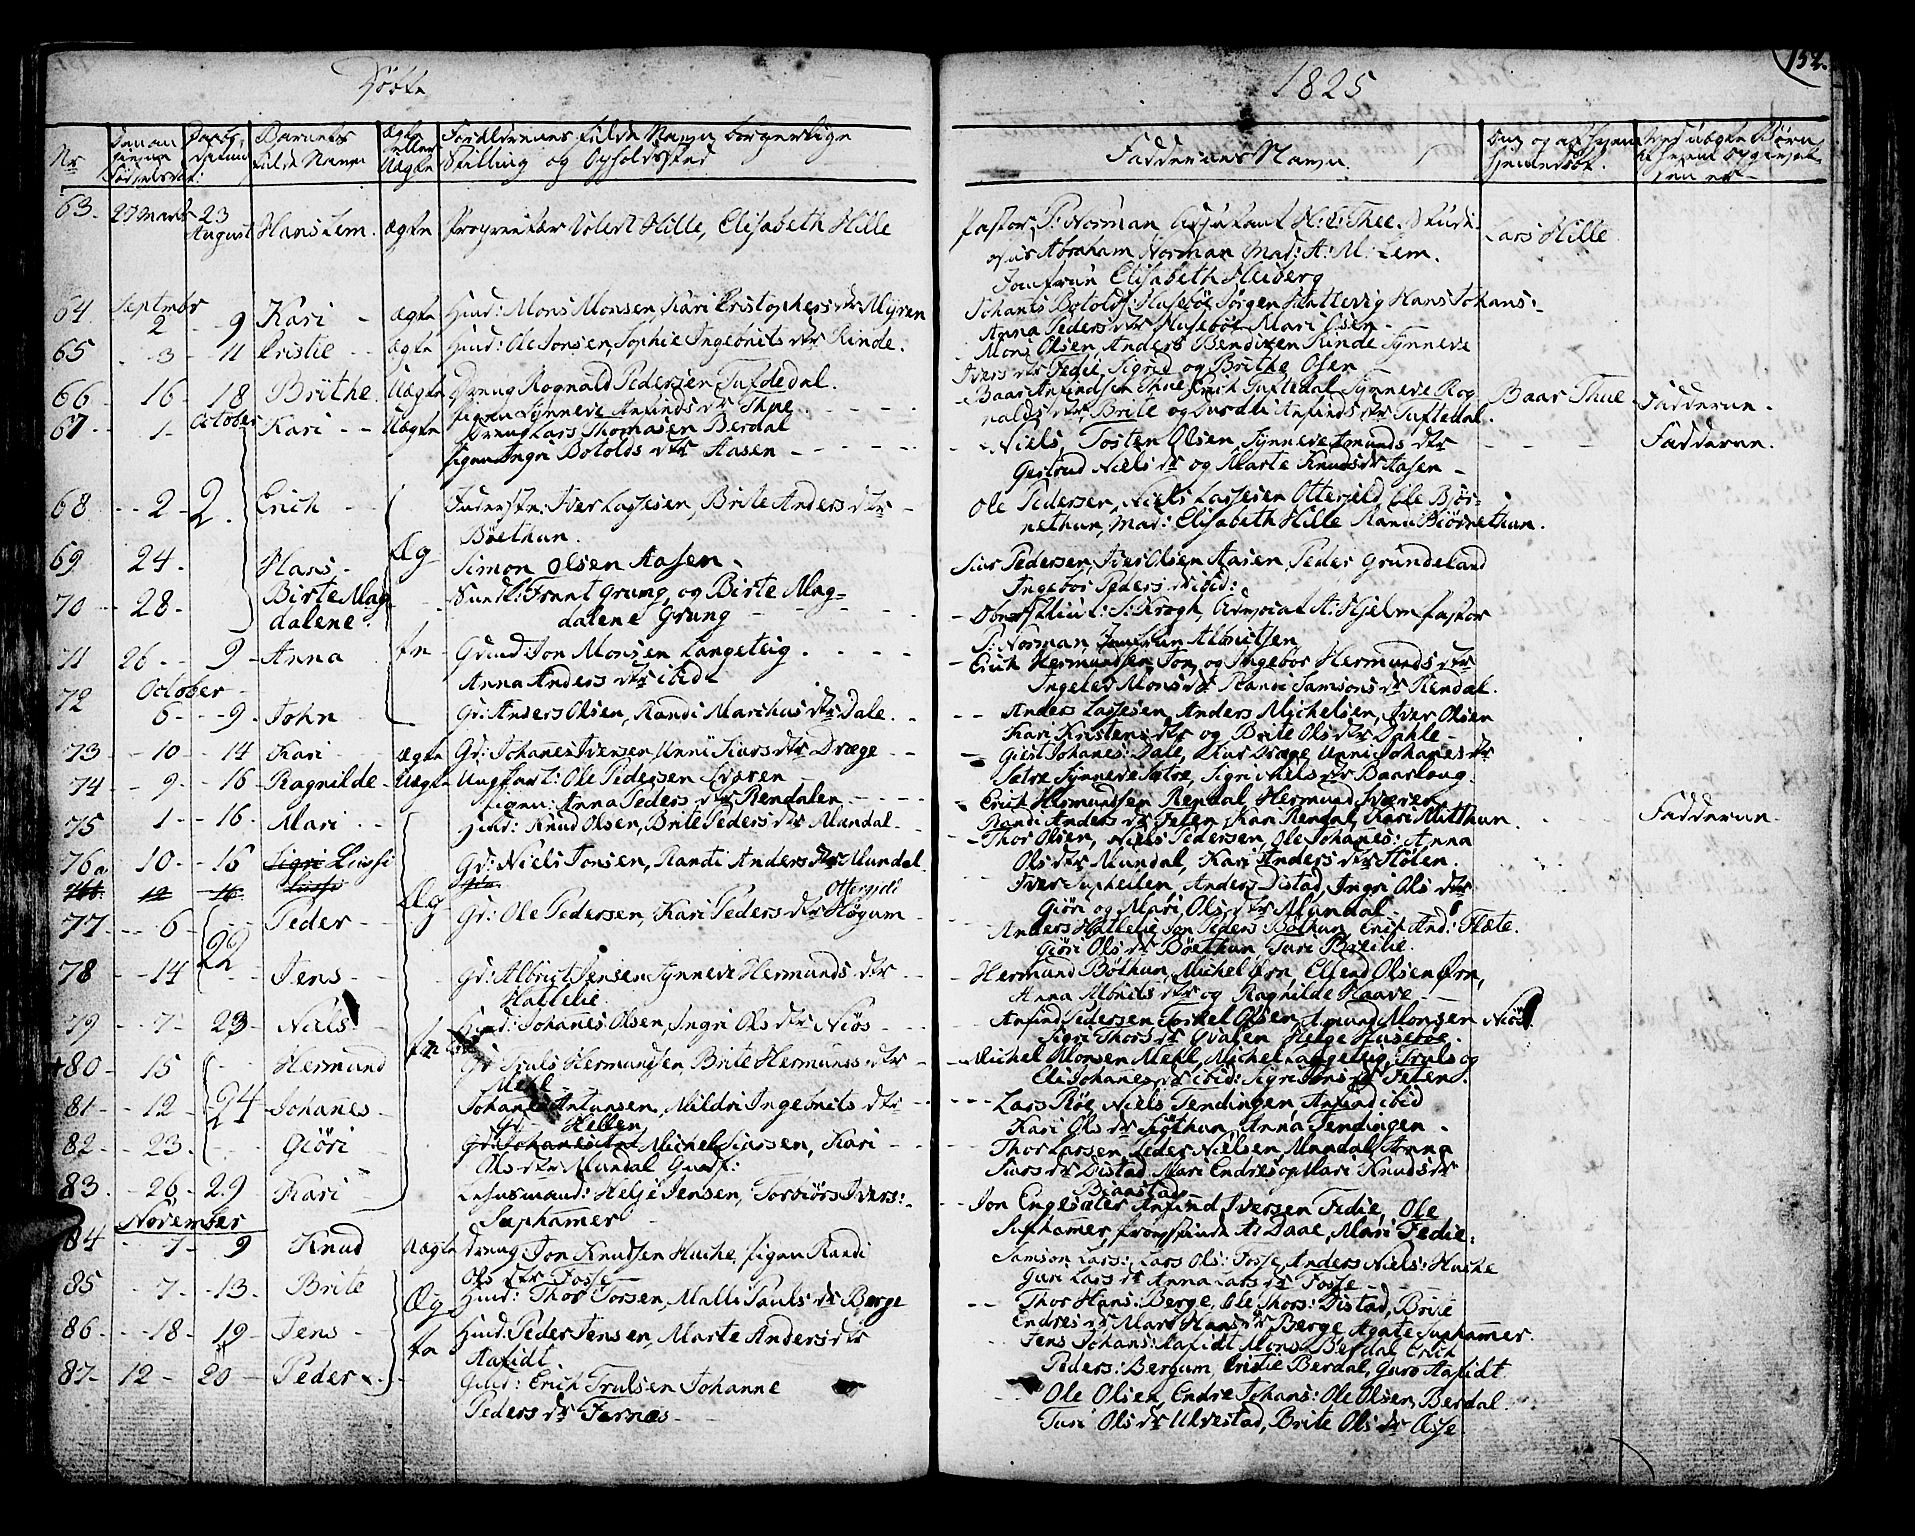 Døbte
1825
152.
Nr
Barnets fulde Navn
Ægte eller Uægte
Forældrenes fulde Navn borgerlige Stilling og Opholdssted
Faddernes Navn
63. 27 Marts 23 August Hans Lem. Ægte Proprietær Volert Hille, Elisabeth Hille
Pastor P: Norman Adjutant H: C: Thee. Studi-
osus Abraham Norman Mad: A: M: Lem.
Jomfrue Elisabeth Heiberg
Lars Hille
64. September 2 - 9 Kari - Ægte Huusmd: Mons Monsen, Kari Cristophersdtr Myren
Johanes Botolds: Husebøe Jørgen Hattevig Hans Johans:
Anna Pedersdtr Husebøe Mari Osen -
65 - 3 - 11 Cristie - Ægte Huusmd: Ole Jonsen, Sophie Ingebrits dtr Rinde.
Mons Olsen, Anders Bendixen Rinde Synneve
Ivers dtr Fedie, Sigrid og Brithe Osen
66 - 16 - 18 Brithe. Uægte Dreng Rognald Pedersen Tufdedal.
pigen Synneve Anfinds dtr Thue.
Baar Anfindsen Thue, Erich Tuftedal, Synneve Rog-
nalds dtr Brite og Anfinds dtr Tuftedal.
Baar Thue
Fadderne.
67 - 1 - October Kari - Uægte Dreng Lars Thomasen Berdal
pigen Ingri Botolds dtr Aasen -
Niels, Tosten Olsen, Synneve Amunds dtr
Gertrud Niels dr og Marte Knudsdr Aasen -
Fadderne.
68 - 2 - 2. Erich - Iver Lassesen, Brite Anders dtr -
Bøethun.
Ole Pedersen, Niels Lassesen Otterjeld, Ole Biør-
nethun, Mad: Elisabeth Hille Rani Biørnethun.
69 24. Hans - Æg- Simon Olsen Aasen.
Siur Pedersen, Iver Olsen Aasen, Peder Grundeland
Ingebor Peders dr ibid:
70 - 28 - Birte Mag-
dalene. Sundt: Frant Grung, og Birte Mag-
dalene Grung
S: Krogh, A: Hjelm pastor
P: Norman, Jomfrue Albritsen
71 26 - 9 - Anna - te- Gmd: Jon Monsen Langeteig.
Anna Anders dtr ibid
Erich Hermundsen Jon og Ingebor Hermunds dtr
Ingeler Mons dr Randi Samsons dr Rendal.
72 October 6 - 9. John - Gr: Anders Olsen, Randi Marchus dtr Dale.
Anders Lassesen, Anders Michelsen, Iver Olsen
Kari Kristens dtr og Brite Ols dtr Dahle -
73 - 10 - 14 Kari - Ægte Gr: Johanes Iversen, Unni Siurs dtr Dræge -
Giert Johanes: Dale, Siur Dræge, Unni Johanes dr
Sætre Synneve Sætre, Sigri Nels dr Baarloug.
74 - 9 - 16 Ragnilde - Uægte Ungkarl: Ole Pedersen Sværen
pigen: Anna Peders dtr Rendalen -
Erich Hermundsen Rendal, Hermund Sværen
Randi Anders dr Felen, Kari Rendal, Kari Mitthun.
Fadderne
75 1 - 16 - Mari - Huusmd: Knud Olsen, Brite Peders dtr Mundal -
Thor Olsen, Niels Pedersen, Ole Johanes: Anna
Ols dtr Mundal, Kari Anders dtr Stølen.
76a 10 - 16 Sigri Lussi Gr: Niels Jonsen, Randi Anders dtr Mundal
Iver Suphellen, Anders Distad, Ingri Ols dtr
Giøri og Mari Ols dtr Mundal
76b 12 - 16 Lussi
77 - 6 - Peder - Æg Gr: Ole Pedersen, Kari Peders dtr Høgum Otterjeld
Anders Hallelie Jon Peders Bøthun, Erich And: Flæte.
Giøri Ols dr Bøethun, Turi Breilie.
78 - 14 - 22 Jens - Gr: Albrigt Jensen, Synneve Hermunds dtr
Hallelie
Hermund Bøthun, Michel Ørn, Ellend Olsen Ørn,
Anna Albrits dtr og Ragnilde Haave -
79 - 7 - 23 - Niels - te Huusmd: Johanes Olsen, Ingri Ols dtr Niøs -
Anfind Pedersen Torkel Olsen, Amund Monsen Niøs
Sigri Thors dr Qvalen Helge Husebøe.
80 - 15 - Hermund Gr Truls Hermundsen, Brite Hermunds dtr
Mehl -
Michel Monsen Mehl, Michel Langeteig, Truls og
Eli Johanes dr ibid: Sigri Jens dr Felen.
81 - 12 - 24 Johanes - Johanes Antunsen, Mildri Ingebrits dtr
Gr - Hellen
Lars Røe, Niels Tendingen, Anfind ibid
Kari Ols dr Siøthun, Anna Tendingen.
82 - 23 - Giøri Gr: Johanes Ant Michel Siursen, Kari
Ols dtr Mundal Gmd:
Thor Larsen, Peder Nielsen, Mundal, Anna
Siurs dr Distad Mari Endres og Mari Knuds dr
Biaastad
83. - 26 - 29 Kari - Lehnsmand: Helje Jensen, Torbiørs Ivers:-
Suphamer
Jon Engesæter Anfind Iversen Fedie, Ole
Suphamer, A: Daae, Mari Fedie:
November
84 - 7 - 9 Knud Uægte Dreng: Jon Knudsen Huske, pigen Randi
Ols dtr Fosse
Samson Lars:, Lars Ols: Fosse, Anders Niels: Huske
Guri Lars dr Anna Lars dr Fosse -
85 - 7 - 13 - Brite Æg Huusmd: Thor Torsen, Malli Pauls dr Berge
Thor Hans: Berge, Ole Thors: Distad, Brite
Endres dr Mari Hans dr Berge Agate Suphamer.
86 - 18 - 19 - Jens - te Huusmd: Peder Jensen, Marte Anders dtr
Aafidt
Jens Johans: Aafidt Mons Berdal Erich
Peders: Bergum, Cristie Berdal, Guro Aafidt
87 - 12 - 20 - Peder - Erich Trulsen Johanne
Peders dr Fernæs -
Ole Olsen, Endre Johans: Ole Olsen, Berdal.
Turi Ols dr Ulvestad, Brite Ols dr Øsse.